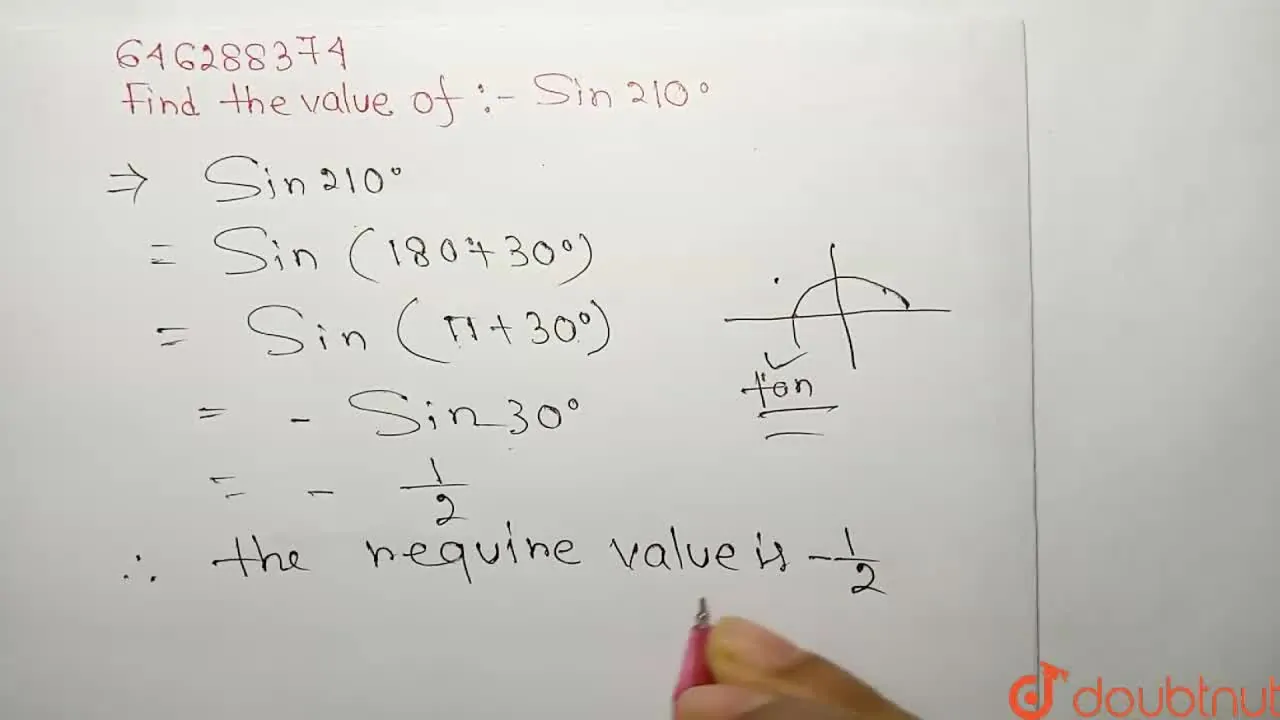 646288374
Find the value of :- Sin 210°
⇒ Sin 210°
= Sin (180°+30°)
= Sin (π+30°)
= - Sin 30°
= - 1/2
∴ the require value is -1/2
tan
doubtnut